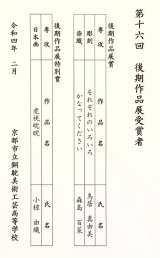 第十六回 後期作品展受賞者
後期作品展賞
専攻 作品名 氏名
彫刻 それぞれのいろいろ 鳥居 真由美
染織 かなってください 森島 百菜
後期作品展特別賞
専攻 作品名 氏名
日本画 小椋 由織
令和四年 二月
京都市立銅駝美術工芸高等学校